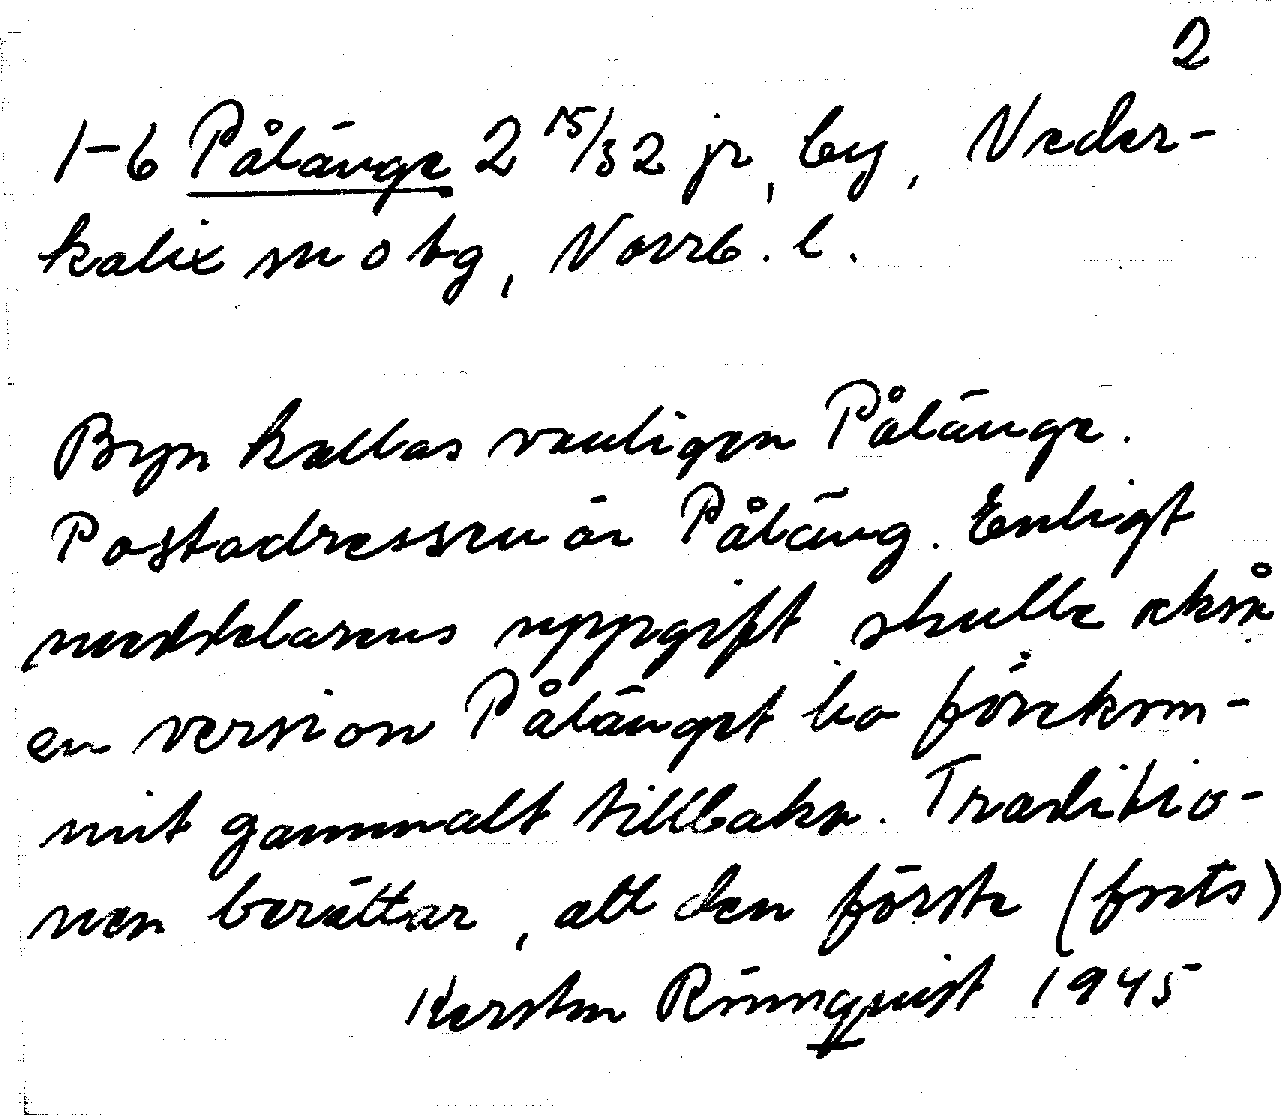 2
1-6 Pålänge 2 15/32 jr, by, Neder-
kalix sn o tg, Norrb. l.
Byn kallas vanligen Pålänge.
Postadressen är Påläng. Enligt
meddelarens uppgift skulle också
en version Pålänget ha förekom-
mit gammalt tillbaka. Traditio-
nen berättar, att den förste (forts)
Kerstin Rönnquist 1945